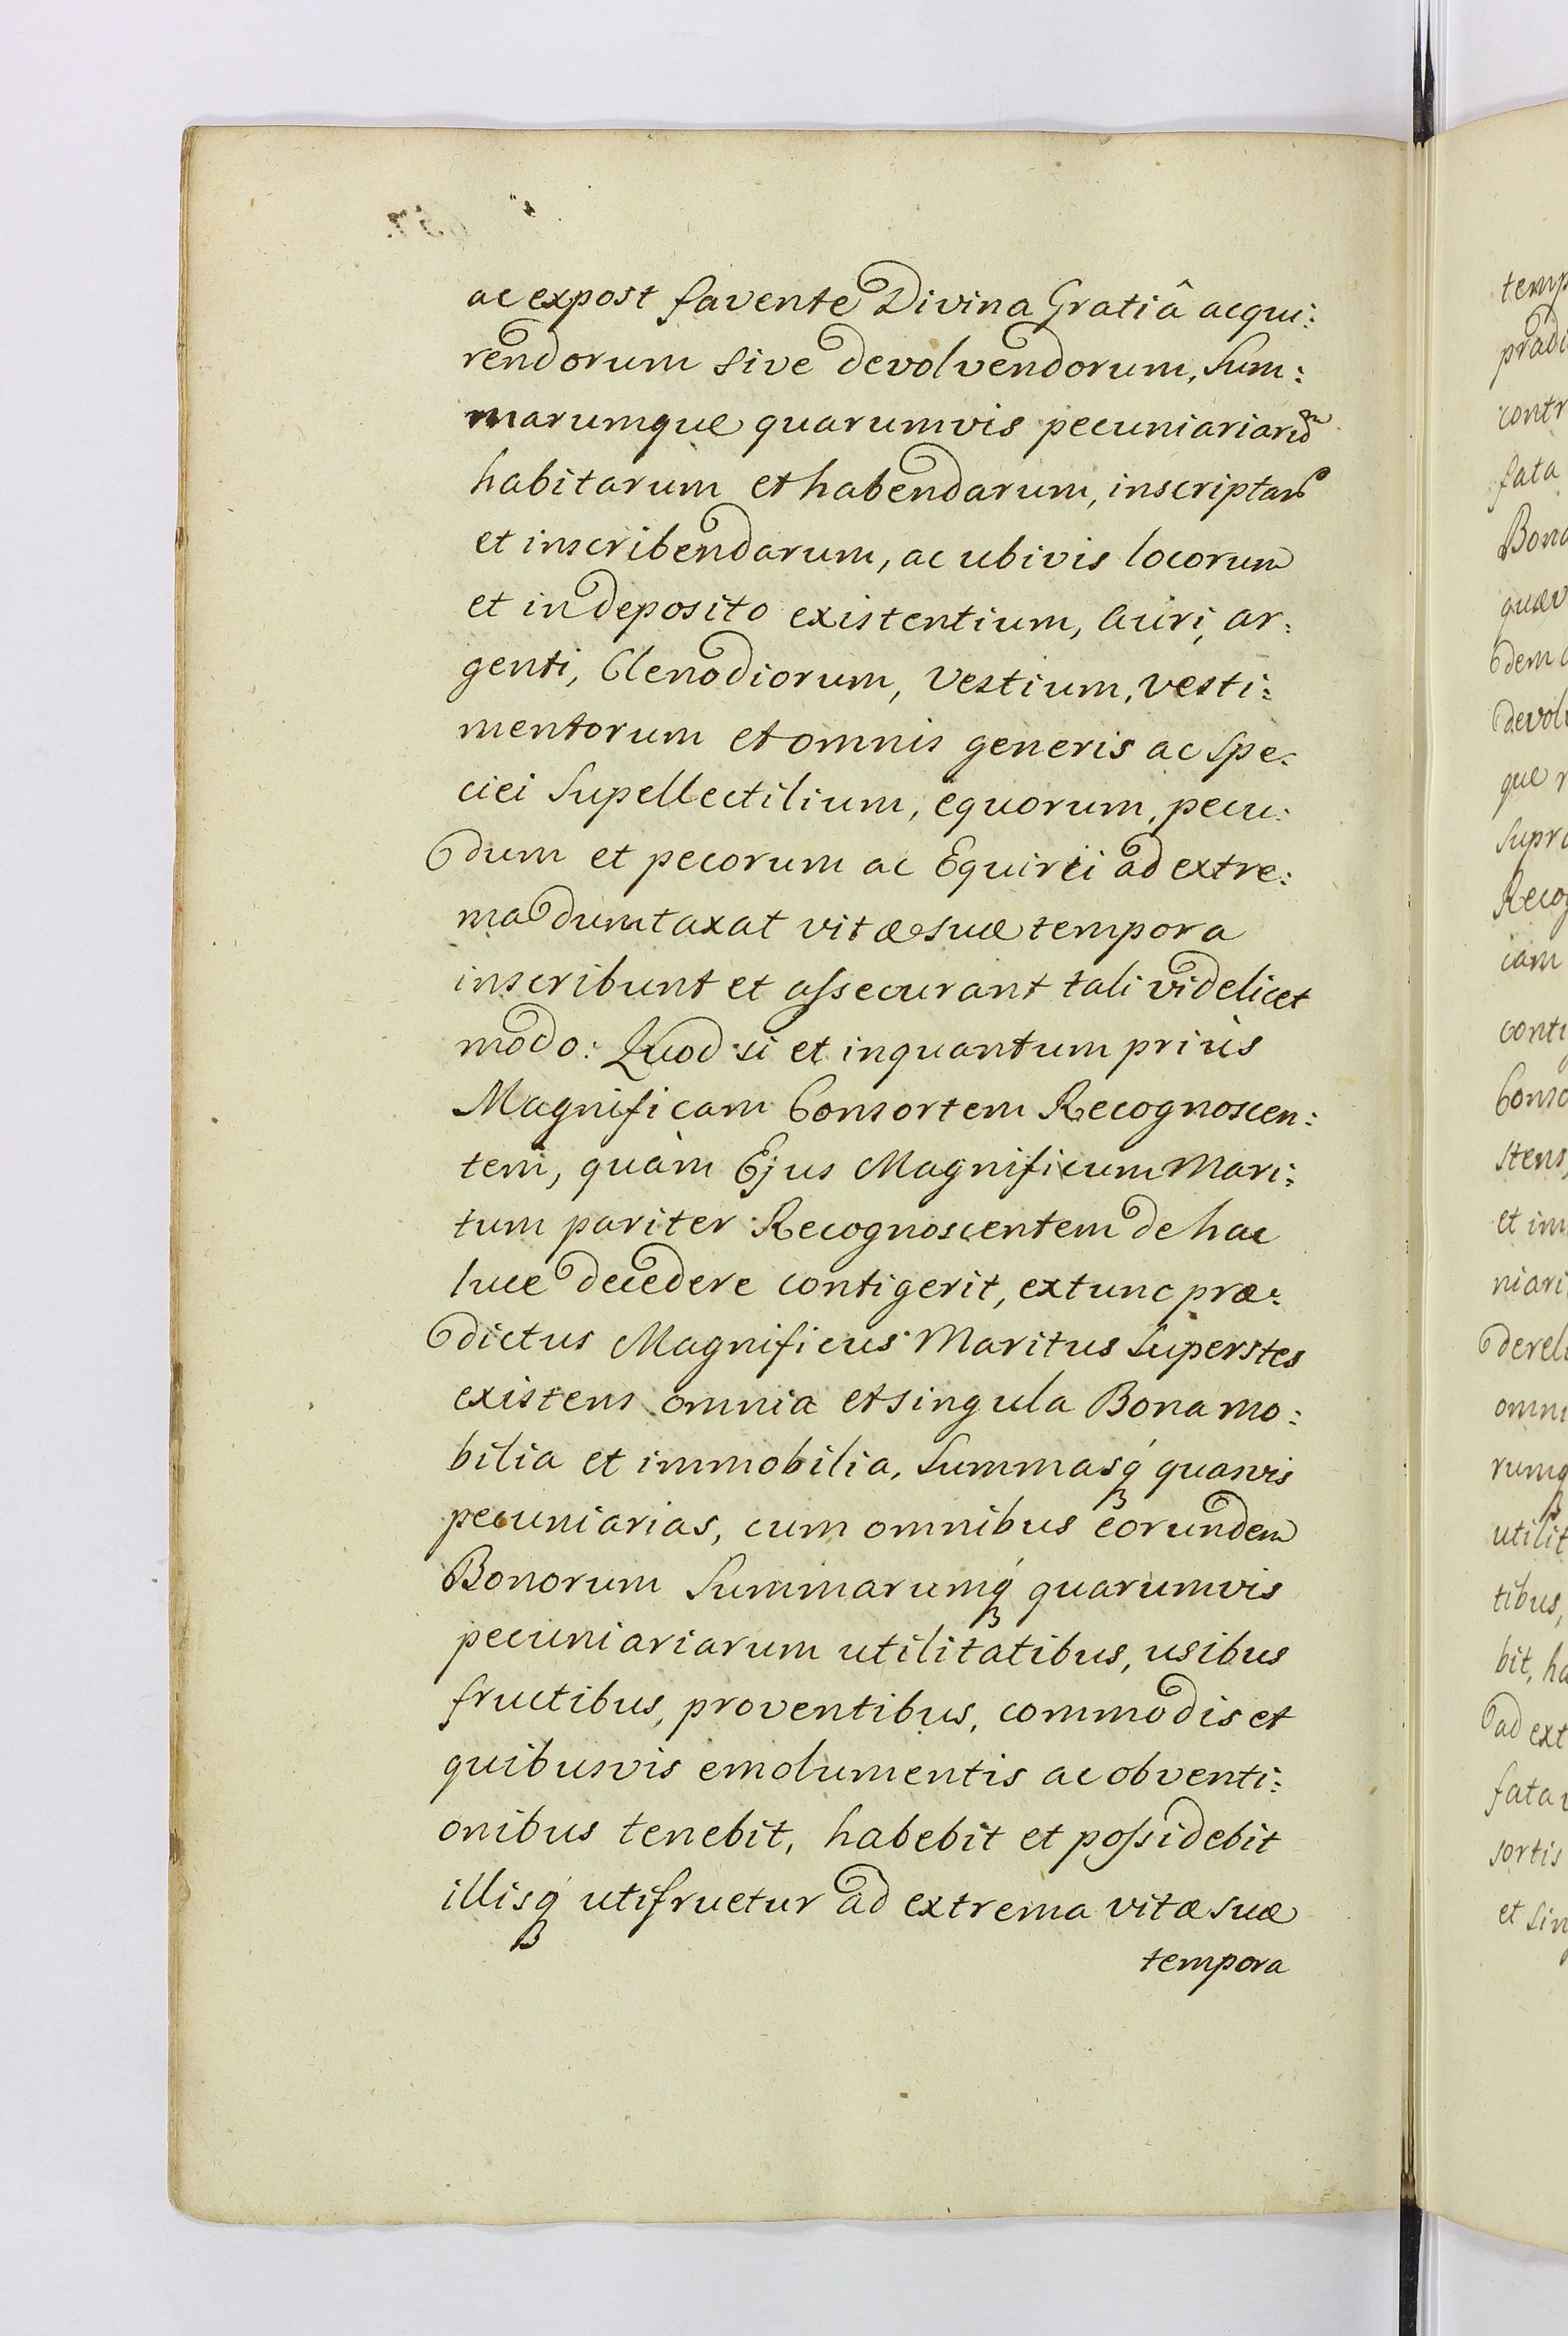 ac expost favente Divina Gratiâ acqui:
rendorum sive devolvendorum, Sum:
marumque quarumvis pecuniariarum
habitarum et habendarum, inscriptarum
et inscribendarum, ac ubivis locorum
et in deposito existentium, auri, ar:
genti, Clenodiorum, Vestium, vesti:
mentorum et omnis generis ac Spe:
ciei Supellectilium, equorum, pecu:
dum et pecorum ac Equirei ad extre:
ma dumtaxat vitæ suæ tempora
inscribunt et assecurant tali videlicet
modo: Quod si et inquantum priùs
Magnificam Consortem Recognoscen:
tem, quàm Ejus Magnificum Mari:
tum pariter Recognoscentem de hac
luce decedere contigerit, extunc præ:
dictus Magnificus Maritus Superstes
existens omnia et singula Bona mo:
bilia et immobilia, Summasq́ quasvis
pecuniarias, cum omnibus eorundem
Bonorum Summarumq́ quarumvis
pecuniariarum utilitatibus, usibus
fructibus, proventibus, commodis et
quibusvis emolumentis ac obventi:
onibus tenebit, habebit et possidebit
illisq́ utifruetur ad extrema vitæ suæ
tempora
temp
prædi
contr
fata
Bona
quæv
dem
devol
que
Supra
Recog
cam
conti
Conso
stens
et im
niari
derel
omni
rumq
utilit
tibus,
bit, ha
ad ext
fata
sortis
et Sin